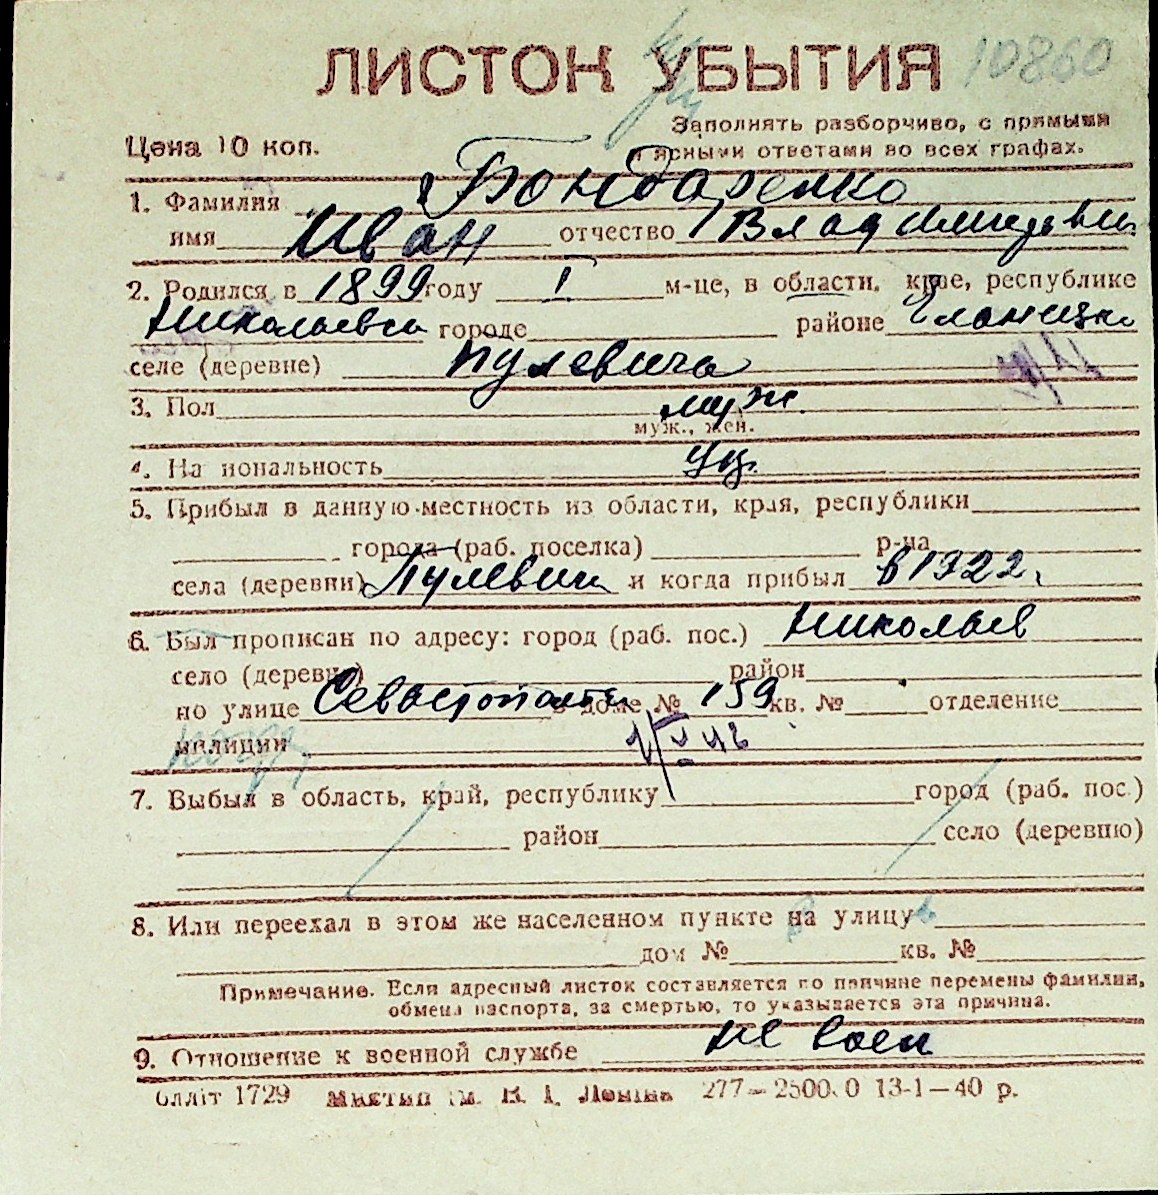 ЛИСТОК УБЫТИЯ 10860
Заполнять разборчиво, с прямыми
Цена 10 коп. и ясными ответами во всех графах.
1. Фамилия Бондаренко
имя Иван отчество Владимирович
2. Родился в 1899 году I м-це, в области, крае, республике
Николаевск городе районе
селе (деревне) Пулевича
3. Пол муж.
муж., жен.
4. Национальность укр.
5. Прибыл в данную местность из области, края, республики
города (раб. поселка) р-на
села (деревни) Пулевич и когда прибыл в 1922г
6. Был прописан по адресу: город (раб. пос.) Николаев
село (деревня) район
по улице Севастопольс в доме № 159 кв. № отделение
милиции
7. Выбыл в область, край, республику город (раб. пос.)
район село (деревню)
8. Или переехал в этом же населенном пункте на улицу
дом № кв. №
Примечание. Если адресный листок составляется по причине перемены фамилии,
обмена паспорта, за смертью, то указывается эта причина.
9. Отношение к военной службе не воен
блліт 1729 Миктип ім. В. І. Леніна 277—25000 13-1—40 р.